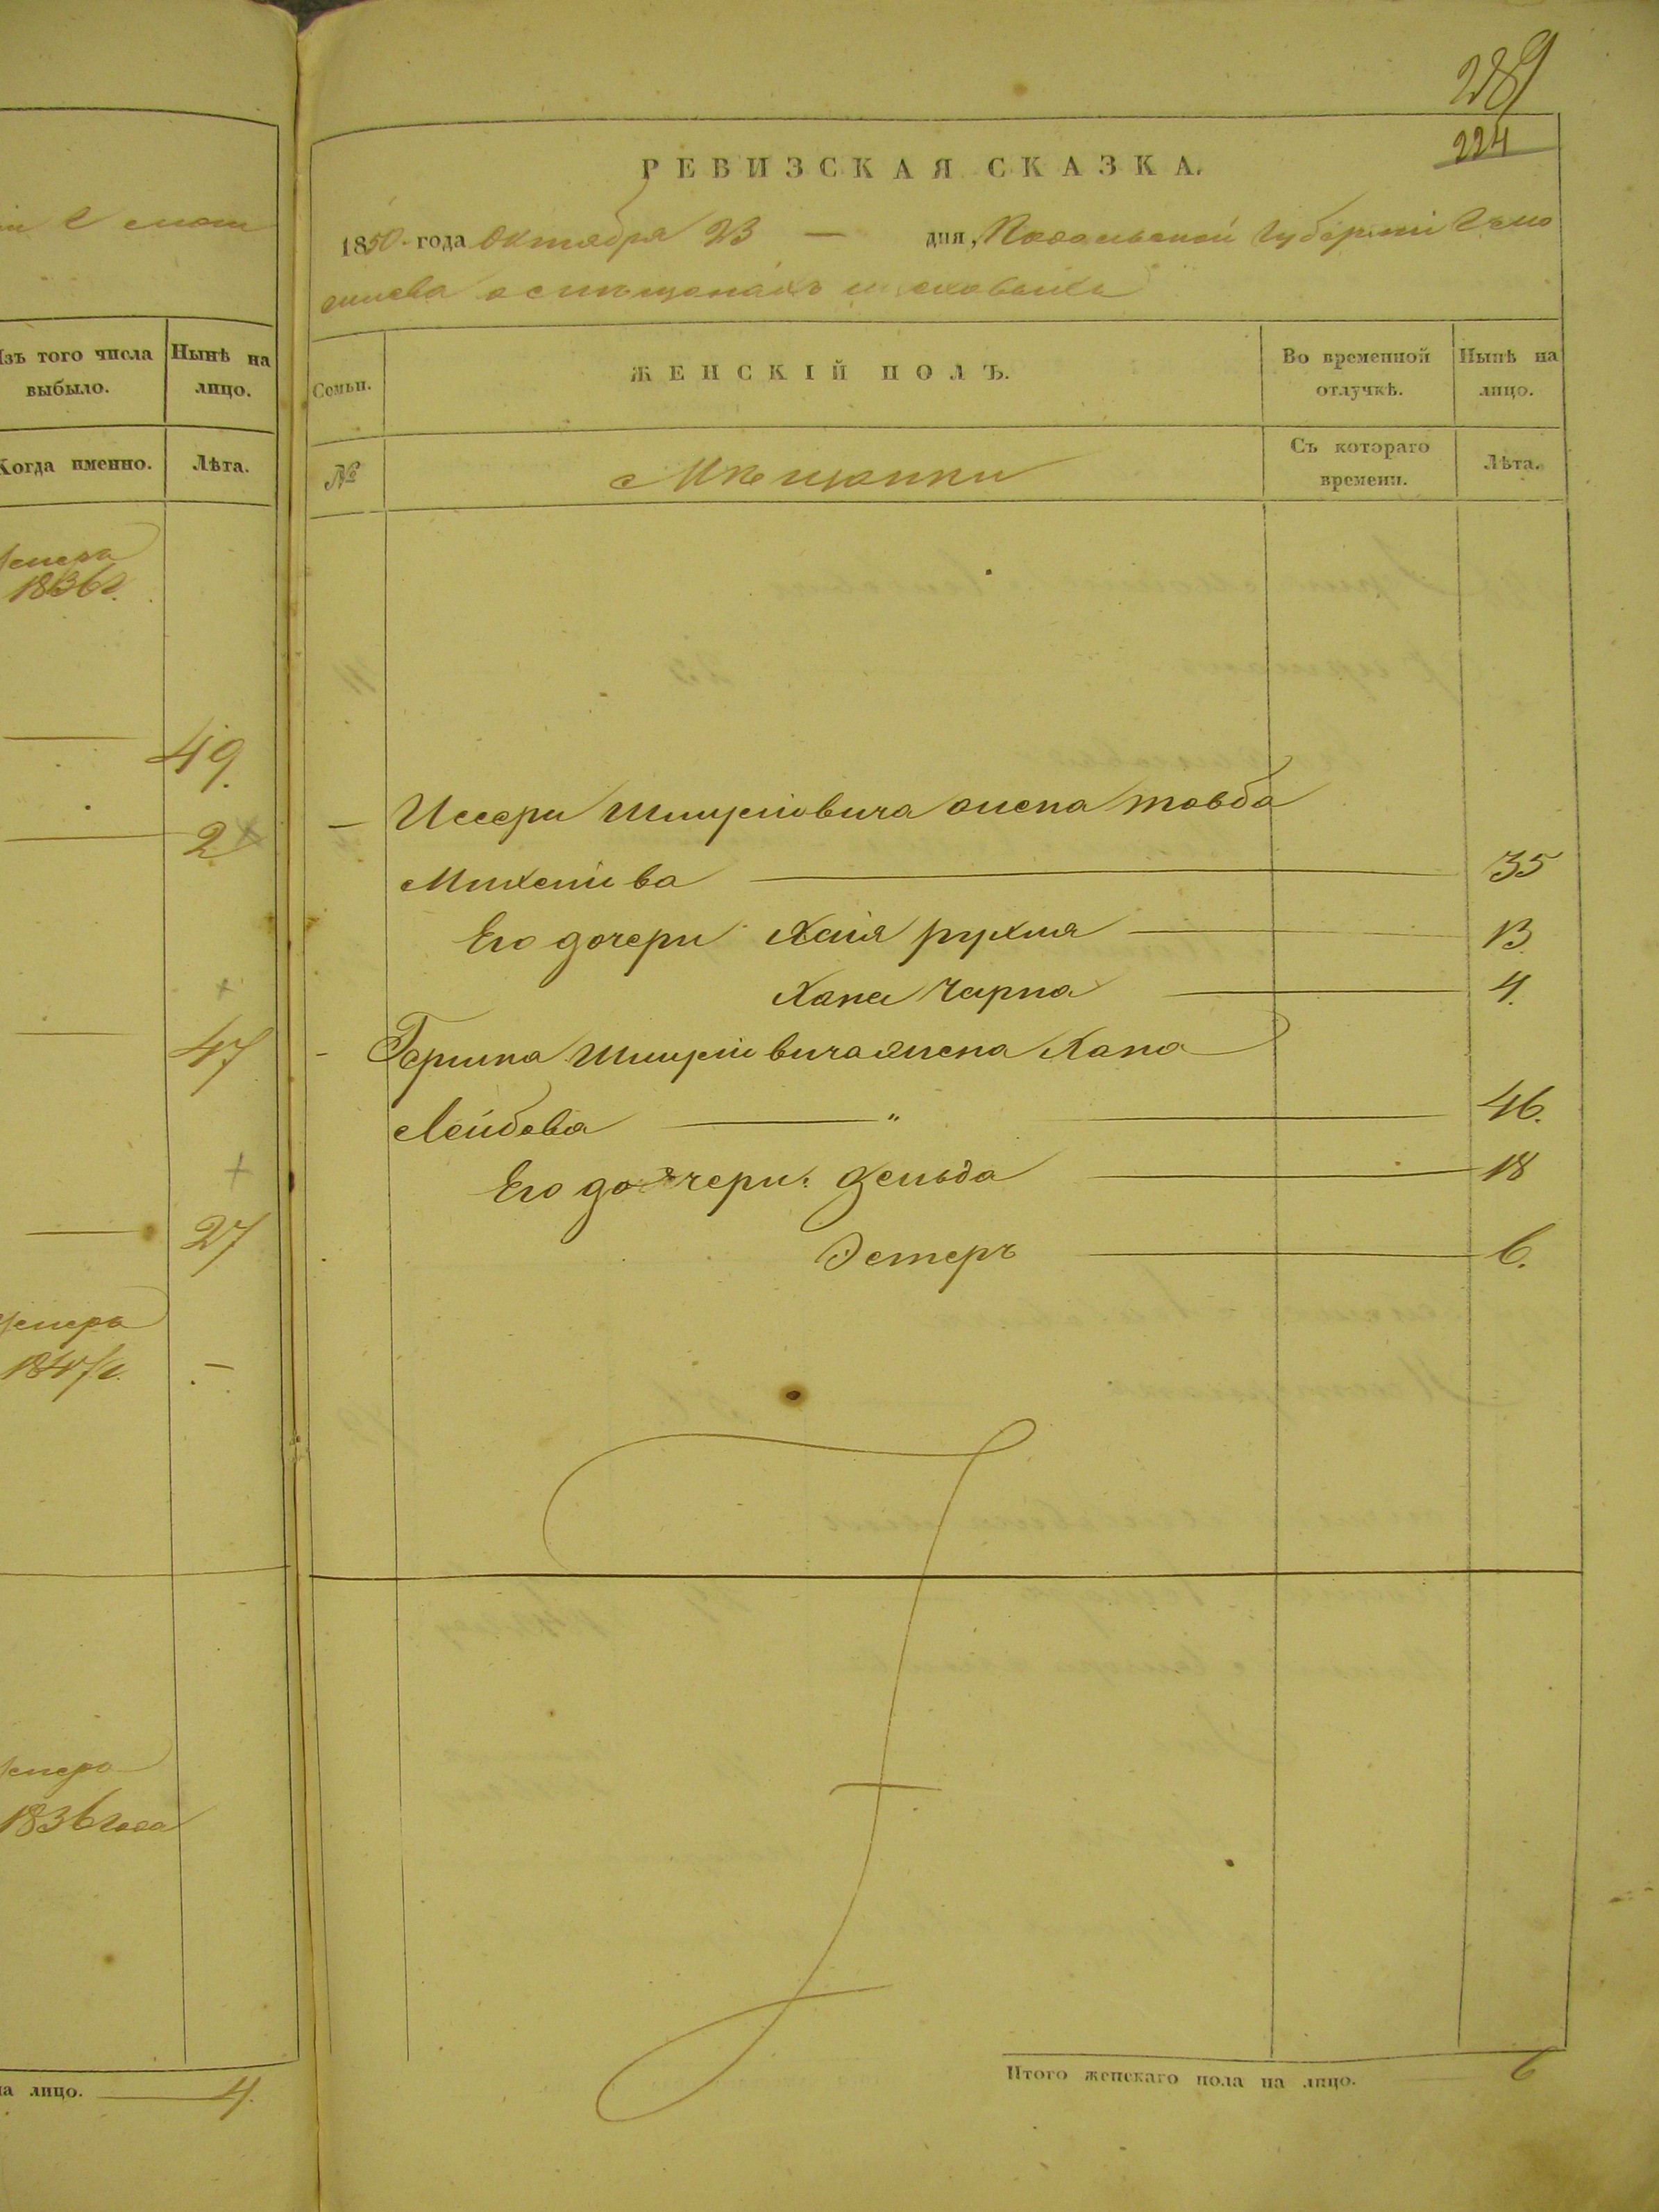 Изъ того числа выбыло.
Нынѣ на лицо.
Когда именно.
Лѣта.
умеръ
1836г.
49.
2
47
27
умеръ
1847г.
—
умеръ
1836 года
на лицо. 4.
289
224
РЕВИЗСКАЯ СКАЗКА.
1850 года Октября 23 — дня, Подольской губерніи
о мѣщанахъ
Семьи.
ЖЕНСКІЙ ПОЛЪ.
Во временной отлучкѣ.
Нынѣ на лицо.
№
Мѣщанки
Съ котораго времени.
Лѣта.
— Иссери Шмулiовича жена товба
Михелiева — 35
Его дочери Хаія рухля — 13.
Хана Чарна — 4.
- Гершка Шмулiовича жена Хана
Лейбова — „ — 46.
Его дочери: Зельда — 18
Эстеръ — 6.
Итого женскаго пола на лицо. 6